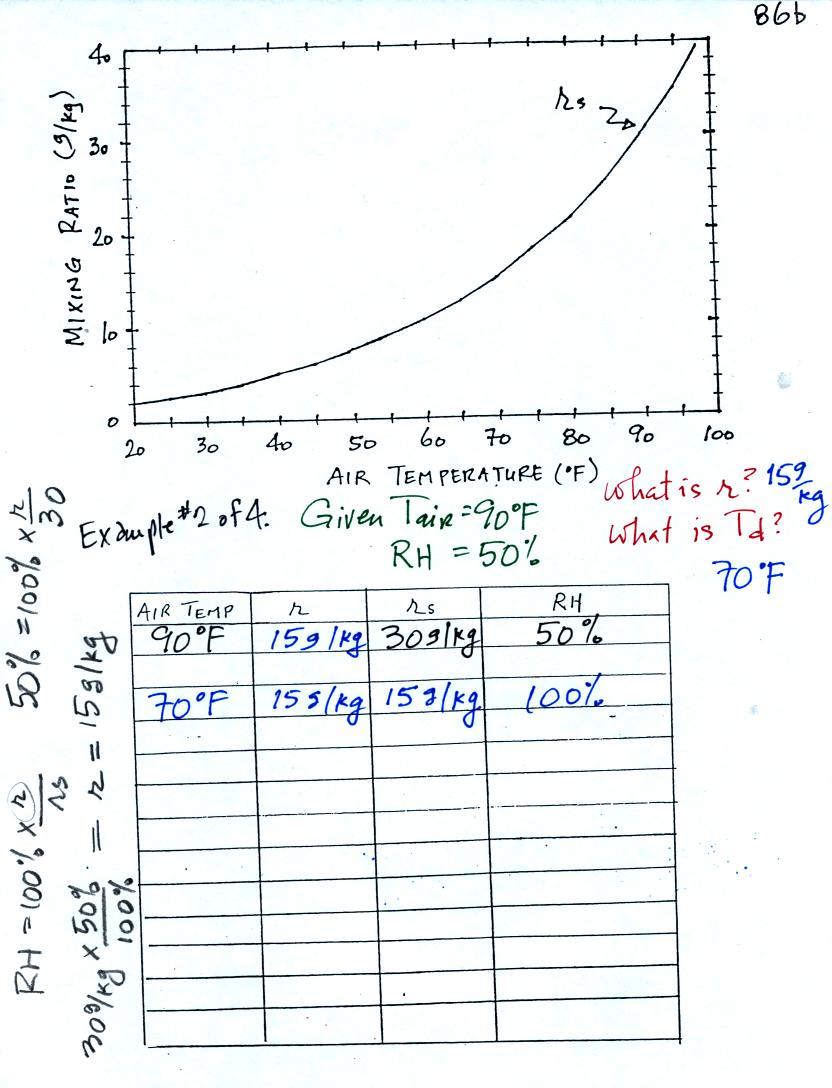 86b
MIXING RATIO (g/kg)
40
30
20
10
0
rs
20 30 40 50 60 70 80 90 100
AIR TEMPERATURE (°F)
Example #2 of 4.
Given Tair = 90°F
RH = 50%
What is r? 15 g/kg
What is Td?
70°F
AIR TEMP r rs RH
90°F 15g/kg 30g/kg 50%
70°F 15g/kg 15g/kg 100%
RH = 100% x r/rs 50% = 100% x r/30
30g/kg x 50%/100% = r = 15g/kg